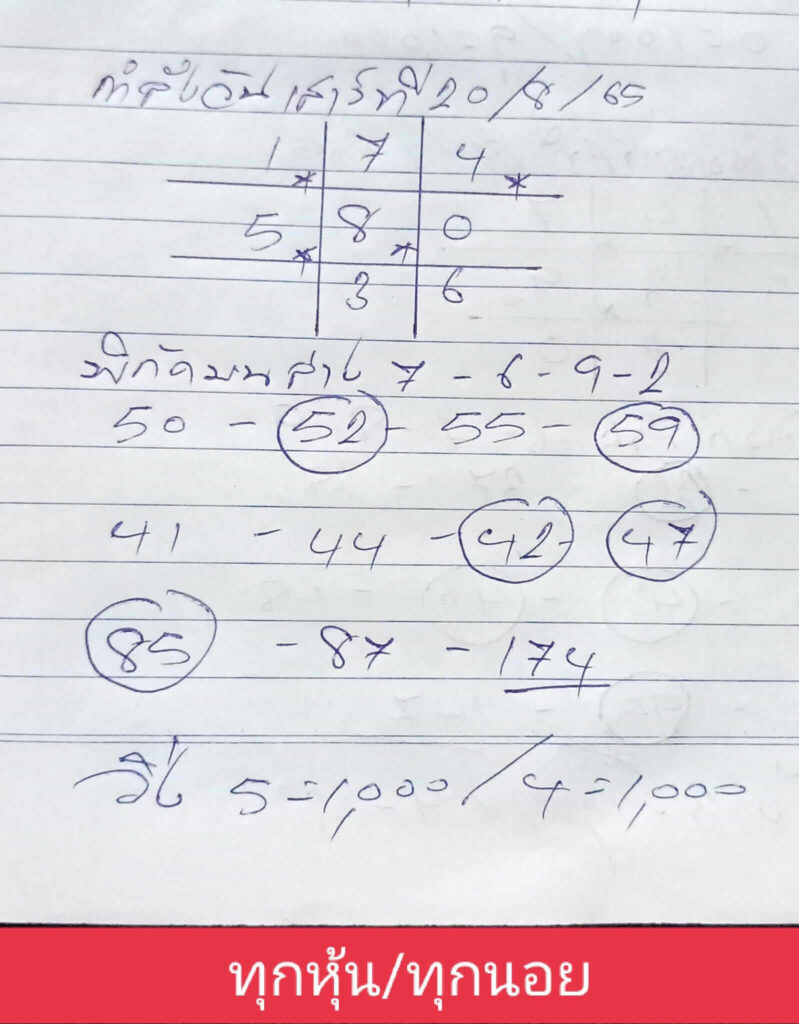 กำลังวันเสาร์ที่ 20/8/65
1 7 4
5 8 0
3 6
พิกัดบนล่าง 7 - 6 - 9 - 2
50 - 52 - 55 - 59
41 - 44 - 42 - 47
85 - 87 - 174
วิ่ง 5 = 1,000 / 4 = 1,000
ทุกหุ้น/ทุกนอย